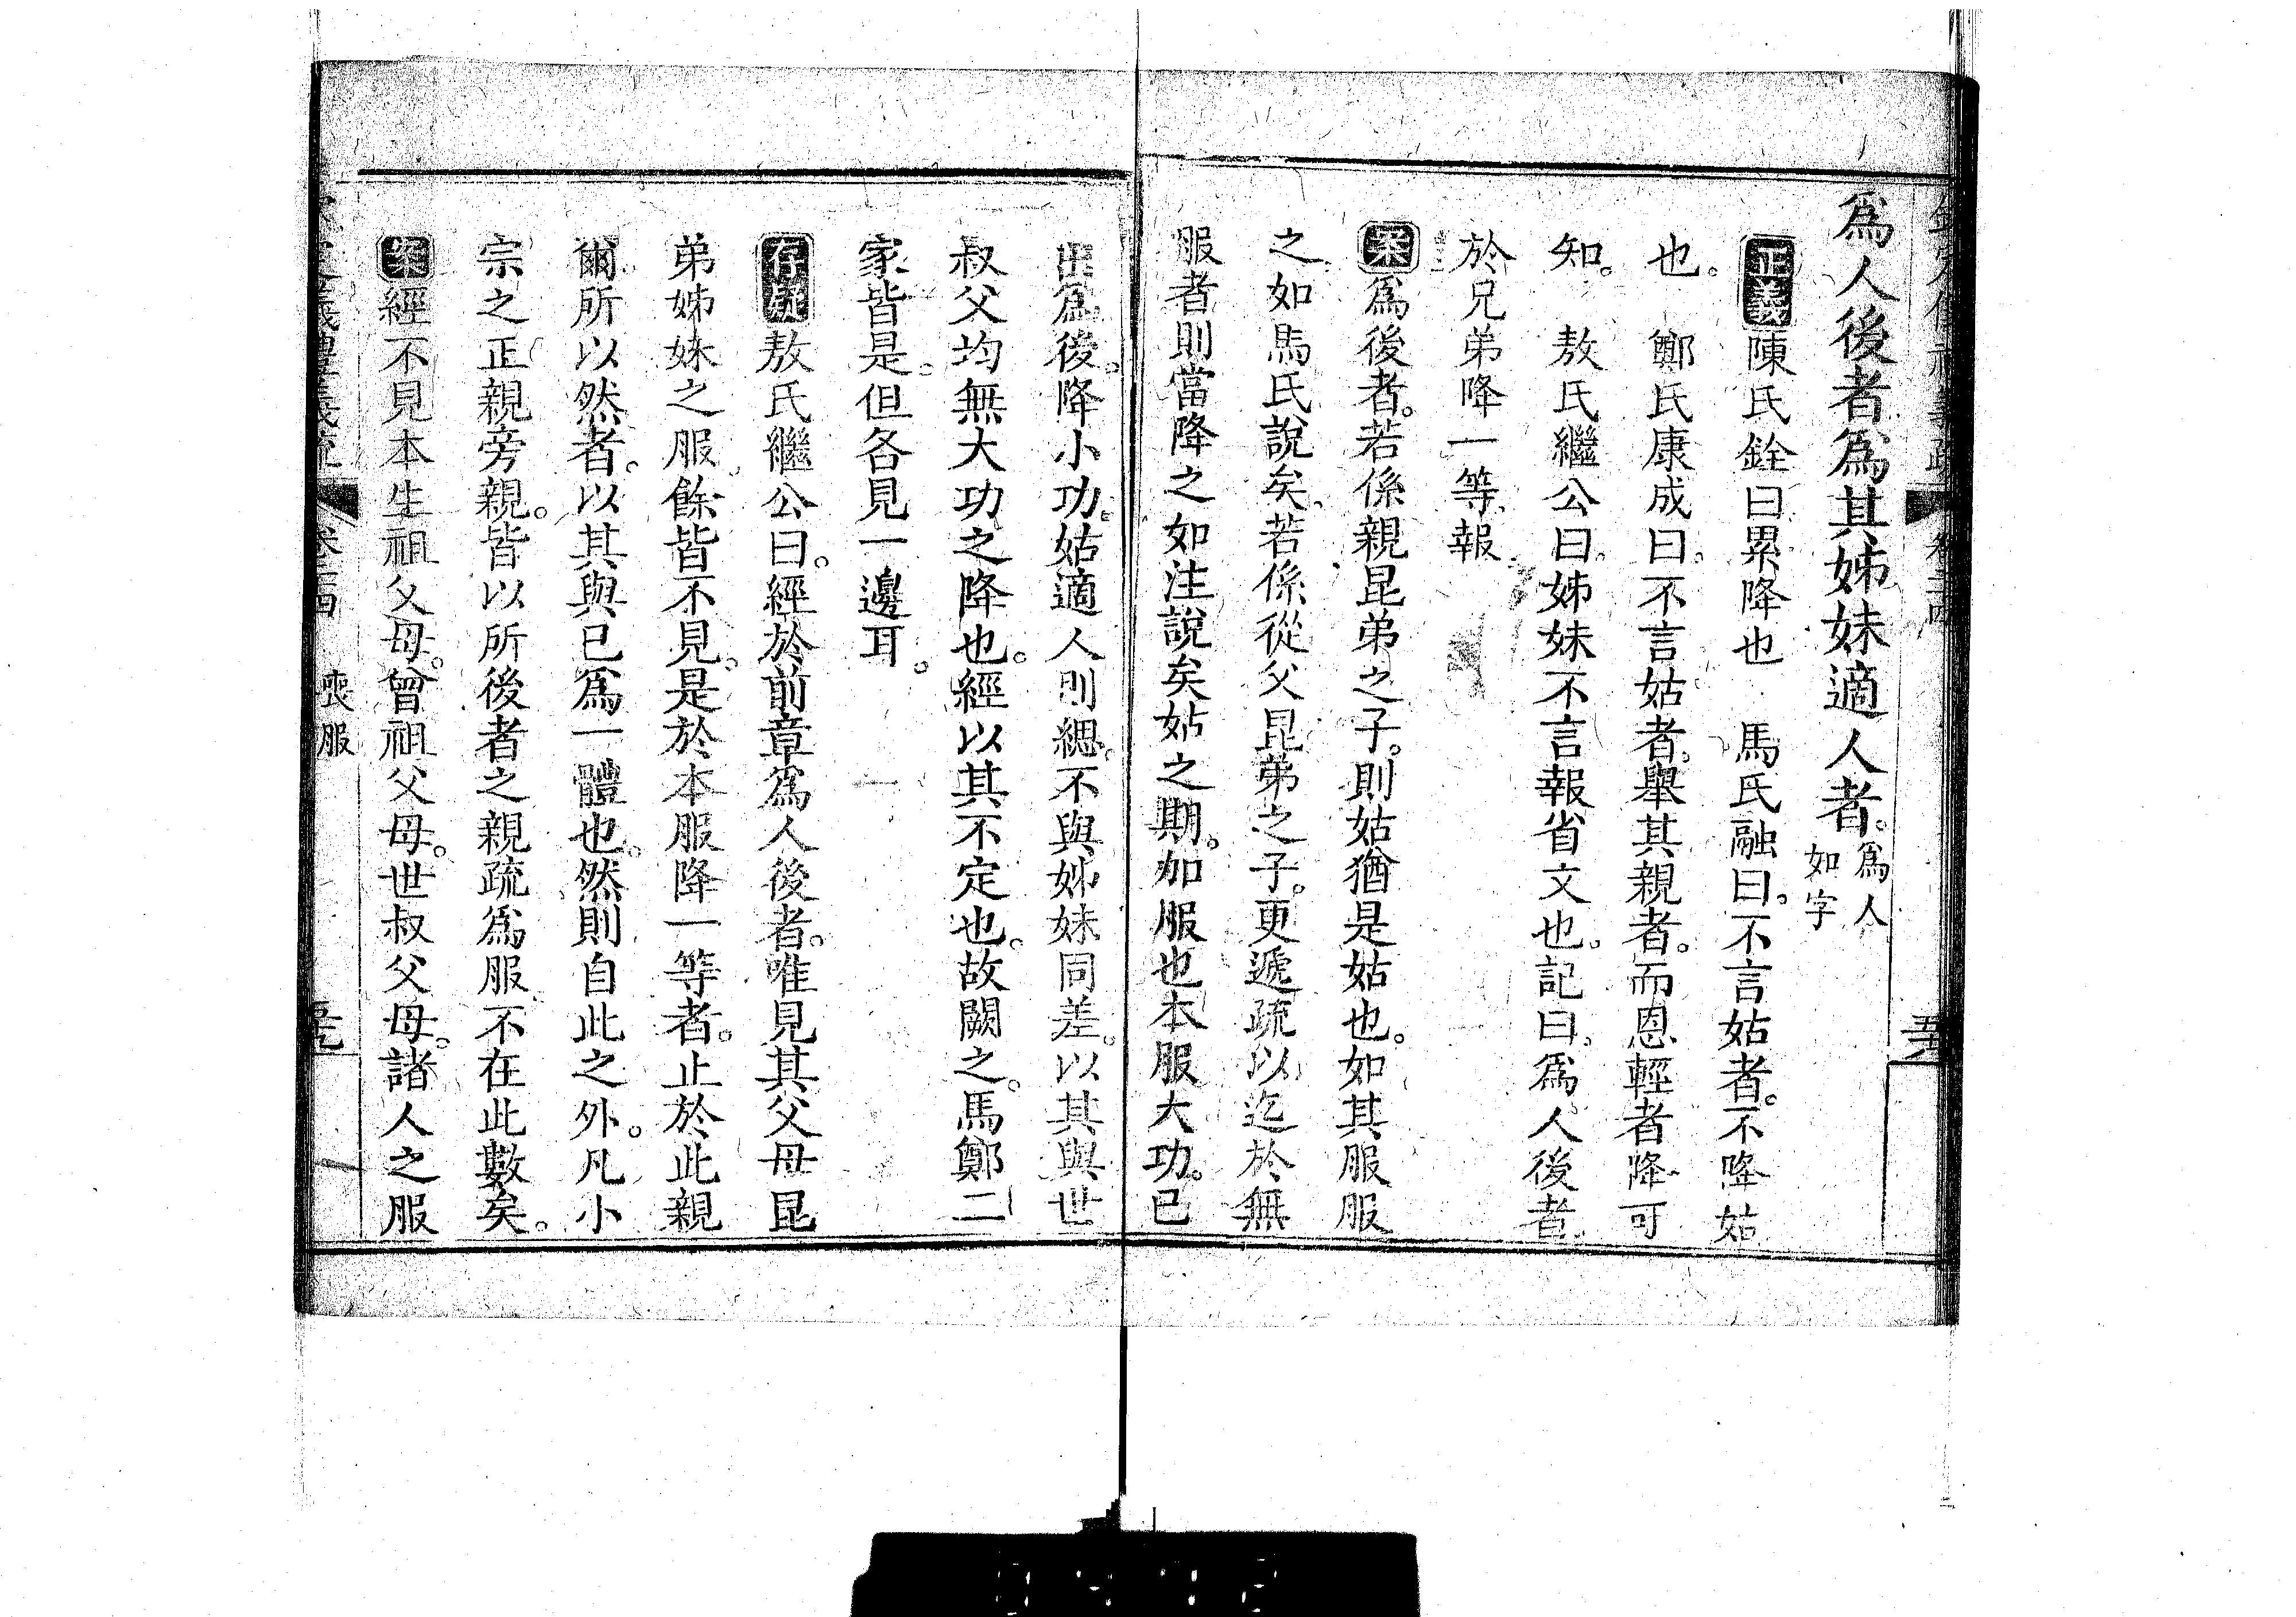 爲人後者爲其姊妹適人者。爲人如字
正義陳氏銓曰累降也　馬氏融曰。不言姑者。不降姑
也。　鄭氏康成曰。不言姑者。舉其親者。而恩輕者降可
知。　敖氏繼公曰。姊妹不言報省文也。記曰。爲人後者。
於兄弟降一等報
案爲後者。若係親昆弟之子。則姑猶是姑也。如其服服
之如馬氏說矣。若係從父昆弟之子。更遞疏以迄於無
服者則當降之如注說矣姑之期。加服也本服大功。已
出爲後。降小功。姑適人則緦。不與姊妹同差。以其與世
叔父均無大功之降也。經以其不定也。故闕之。馬鄭二
家皆是。但各見一邊耳。
存疑敖氏繼公曰。經於前章爲人後者。唯見其父母昆
弟姊妹之服。餘皆不見。是於本服降一等者。止於此親
爾所以然者。以其與已爲一體也。然則自此之外。凡小
宗之正親旁親。皆以所後者之親疏爲服不在此數矣。
案經不見本生祖父母。曾祖父母。世叔父母。諸人之服
義禮義疏　卷二四　喪服